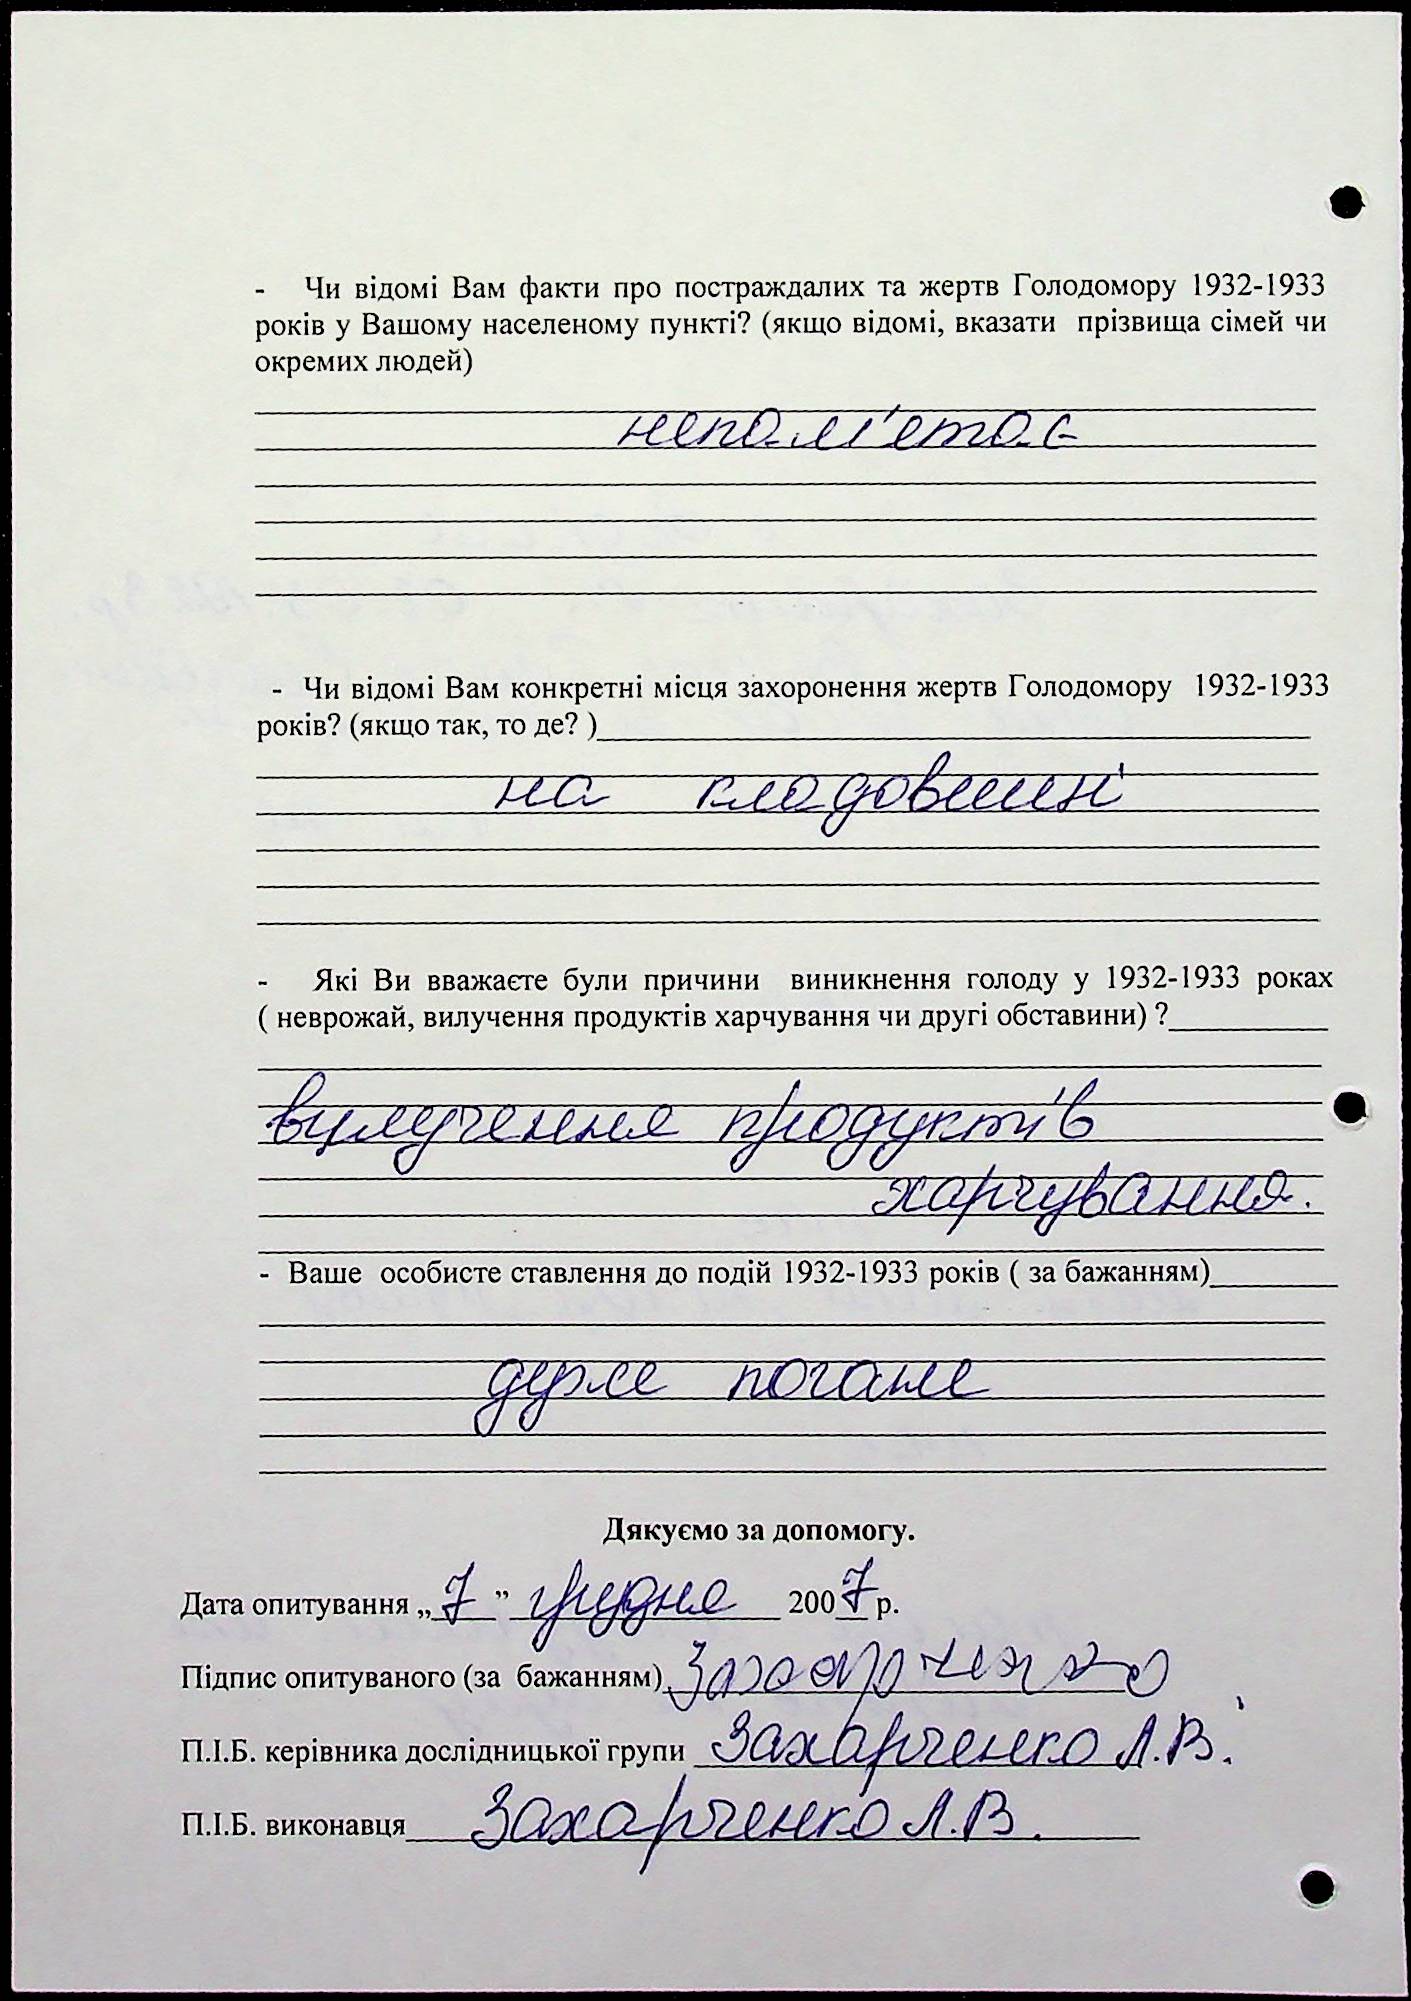 - Чи відомі Вам факти про постраждалих та жертв Голодомору 1932-1933
років у Вашому населеному пункті? (якщо відомі, вказати прізвища сімей чи
окремих людей)
непам'етає
- Чи відомі Вам конкретні місця захоронення жертв Голодомору 1932-1933
років? (якщо так, то де? )
на кладовищі
- Які Ви вважаєте були причини виникнення голоду у 1932-1933 роках
( неврожай, вилучення продуктів харчування чи другі обставини) ?
вилучення продуктів
харчування.
- Ваше особисте ставлення до подій 1932-1933 років ( за бажанням)
дуже погане
Дякуємо за допомогу.
Дата опитування „7” грудня 2007 р.
Підпис опитуваного (за бажанням) Захарченко
П.І.Б. керівника дослідницької групи Захарченко Л.В.
П.І.Б. виконавця Захарченко Л.В.